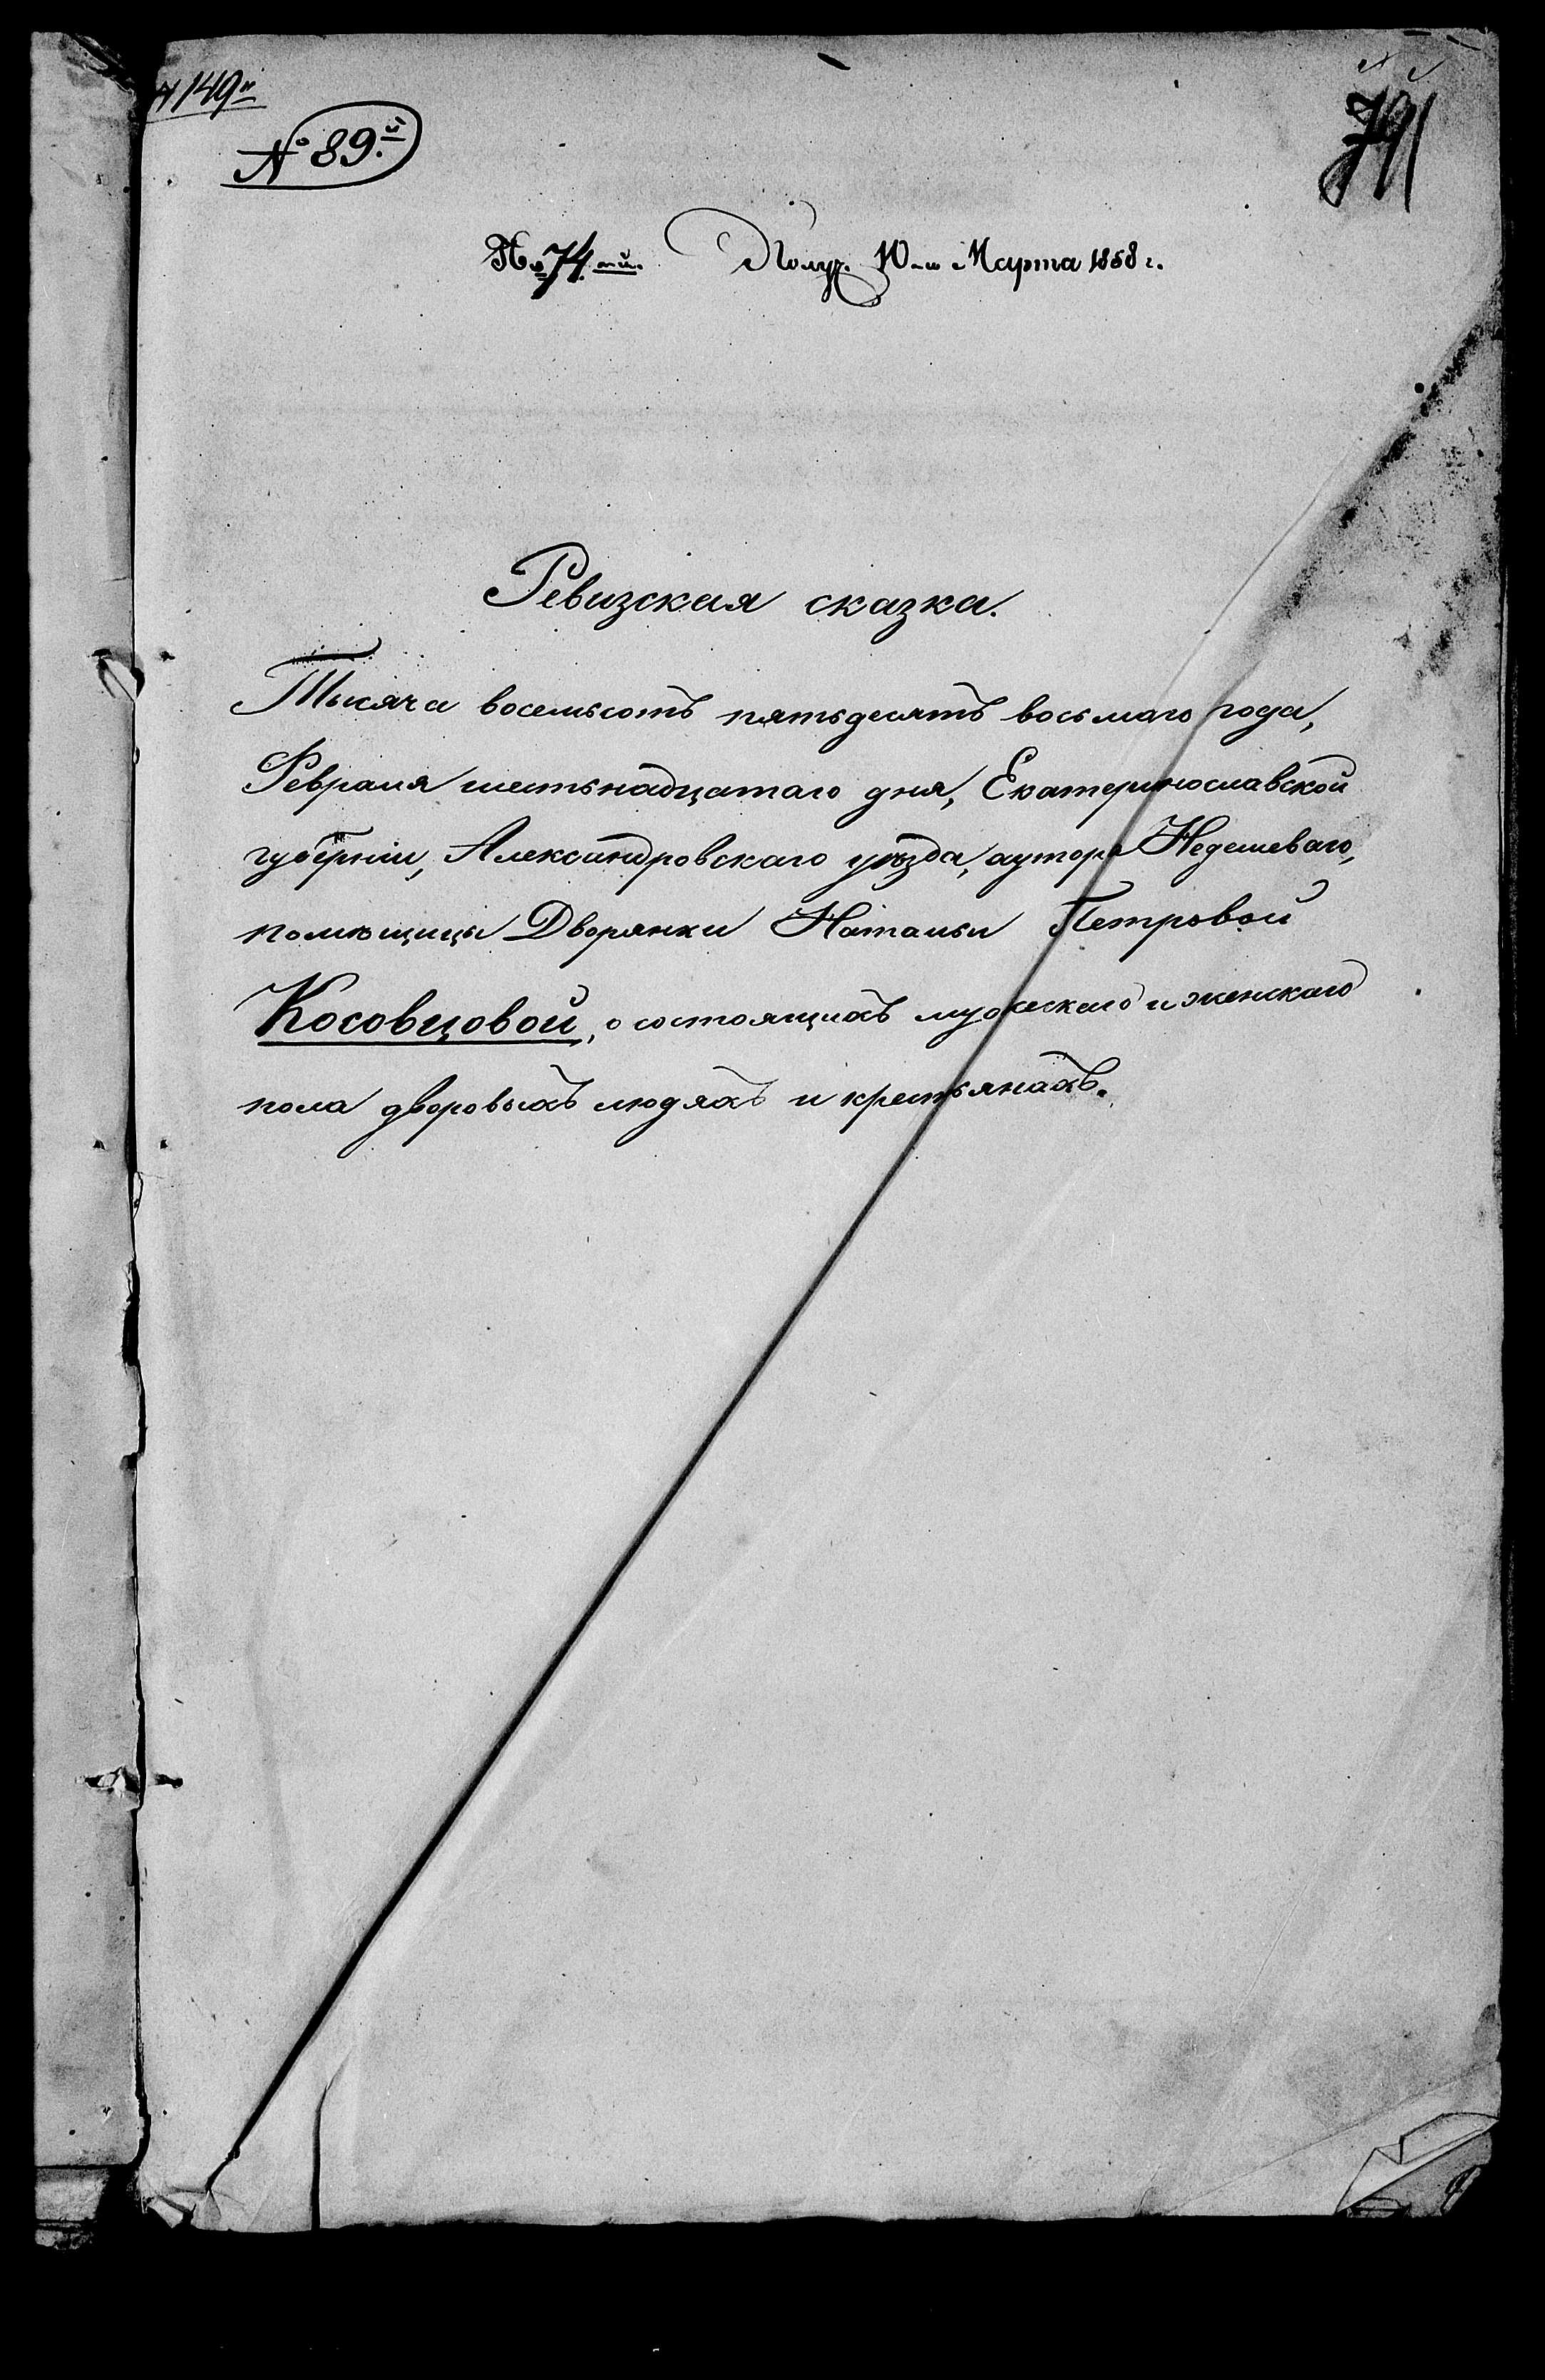 № 149й
№ 89.й
791
№ 74.ый. Получ. 10-го Марта 1858 г.
Ревизская сказка.
Тысяча восемьсотъ пятьдесятъ восьмаго года,
Февраля шестьнадцатаго дня, Екатеринославской
губерніи, Александровскаго уѣзда, хутора Недешеваго,
помѣщицы Дворянки Натальи Петровой
Косовцовой, о состоящихъ мужескаго и женскаго
пола дворовыхъ людяхъ и крестьянахъ.